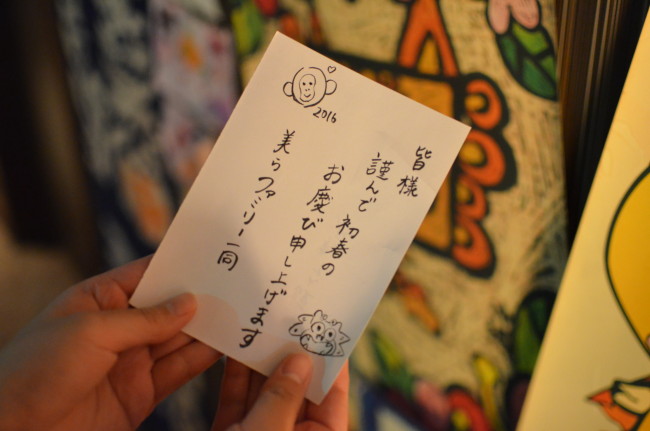 皆様
謹んで初春の
お慶び申し上げます
美らファミリー一同
2016